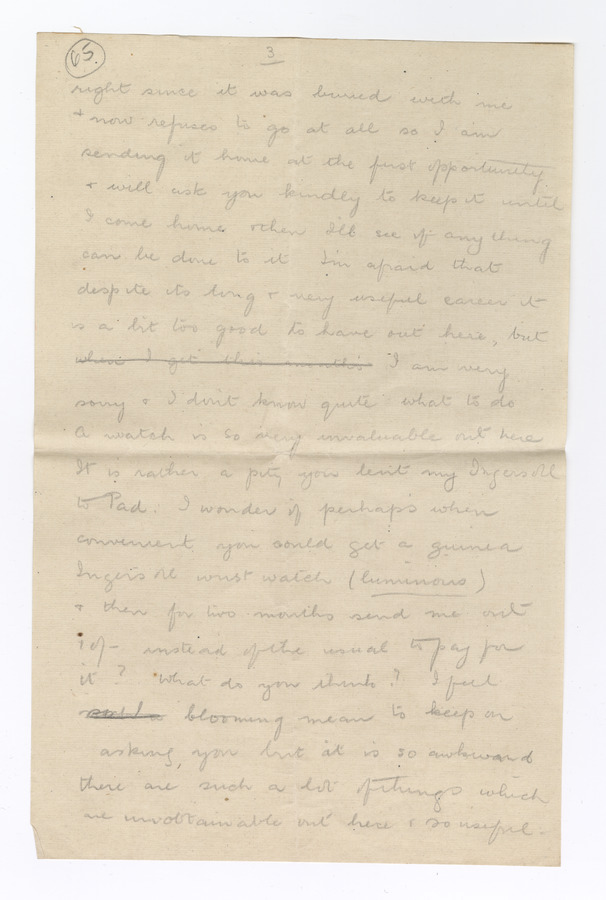 65.
3
right since it was buried with me
& now refuses to go at all so I am
sending it home at the first opportunity
& will ask you kindly to keep it until
I come home & then I'll see if anything
can be done to it I'm afraid that
despite its long & very useful career it
is a bit too good to have out here, but
when I get this month's I am very
sorry & I don't know quite what to do
A watch is so very invaluable out here
It is rather a pity you lent my Ingersoll
to Pad. I wonder if perhaps when
convenient you could get a guinea
Ingersoll wrist watch (luminous)
& then for two months send me out
10/- instead of the usual to pay for
it? What do you think? I feel
blooming mean to keep on
asking you but it is so awkward
there are such a lot of things which
are unobtainable out here & so useful.